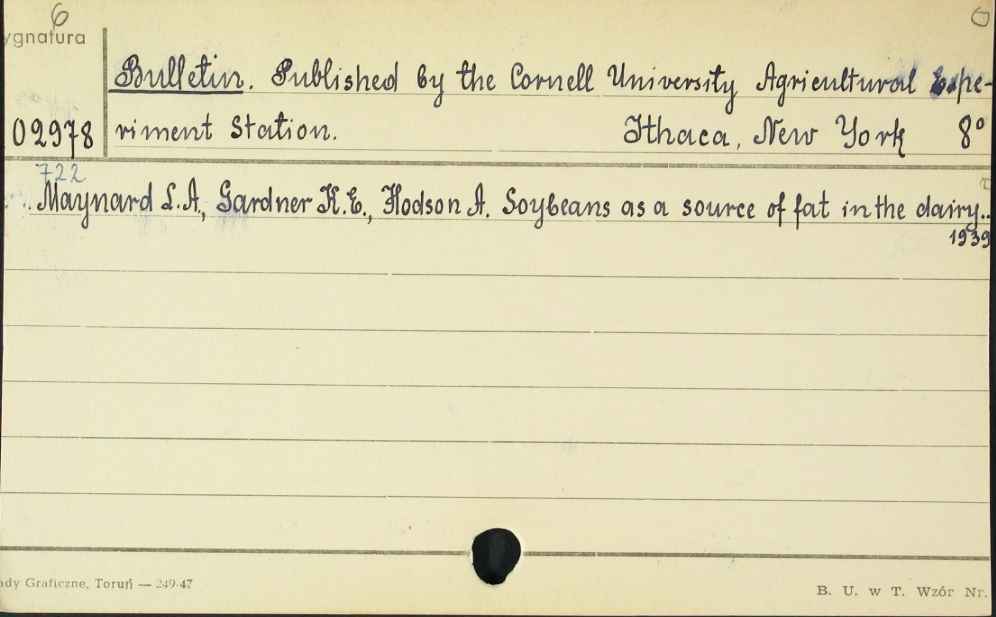 6
ygnatura
Bulletin. Published by the Cornell University Agricultural Expe-
02978 riment Station. Ithaca, New York 8°
722
Maynard L.A., Gardner K.E., Hodson A. Soybeans as a source of fat in the dairy..
1939
ady Graficzne, Toruń — 249-47
B. U. w T. Wzór Nr.